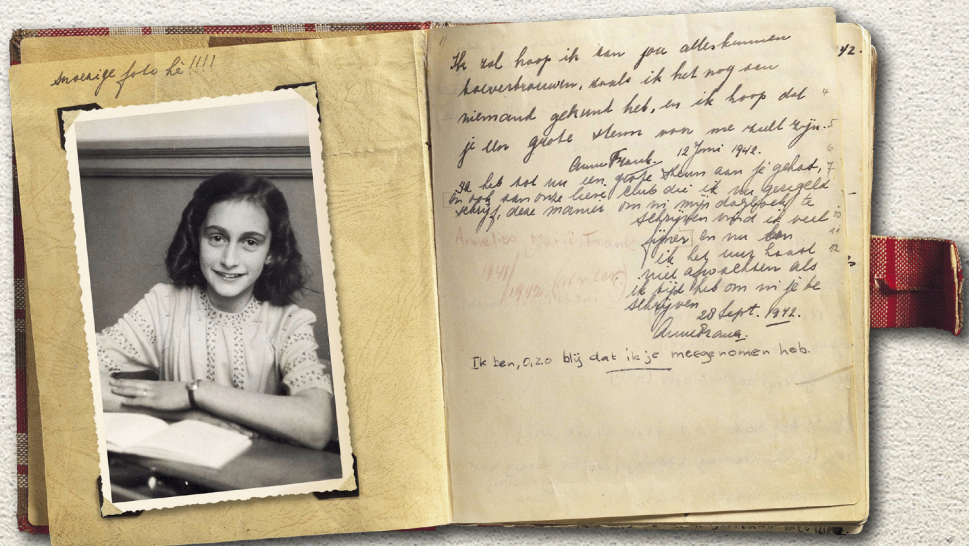 snoezige foto hè!!!!
Ik zal hoop ik aan jou alles kunnen
toevertrouwen, zoals ik het nog aan
niemand gekund heb, en ik hoop dat
je een grote steun voor me zult zijn.
Anne Frank. 12 Juni 1942.
Ik heb tot nu een grote steun aan je gehad,
en ook aan onze lieve club die ik nu geregeld
schrijf, deze manier om in mijn dagboek te
schrijven vind ik veel
fijner en nu kan
ik het uur haast
niet afwachten als
ik tijd heb om in je te
schrijven.
28 Sept. 1942.
Anne Frank.
Ik ben, o, zo blij dat ik je meegenomen heb.
Annelies Marie Frank
1941/
1942.
42.
4
5
6
7
10
11
12